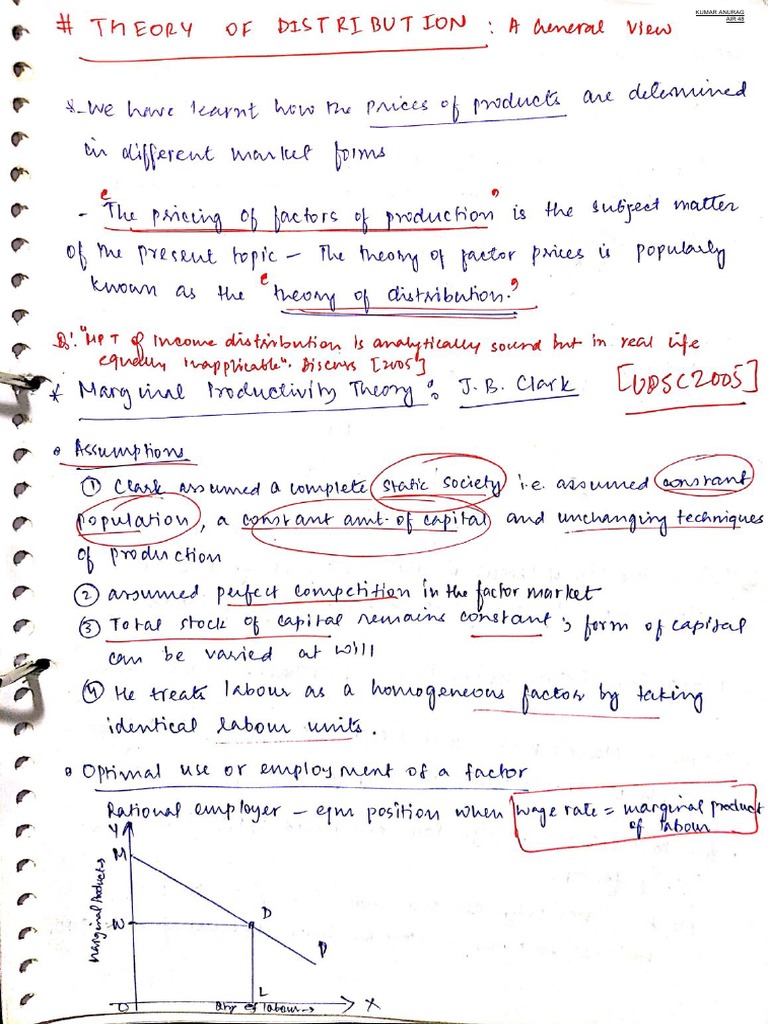 KUMAR ANURAG
AIR 48
# THEORY OF DISTRIBUTION : A General View
*- We have learnt how the prices of products are determined
in different market forms
- "The pricing of factors of production" is the subject matter
of the present topic – The theory of factor prices is popularly
known as the "theory of distribution."
Q: "MPT of Income distribution is analytically sound but in real life
equally inapplicable". Discuss [2005]
* Marginal Productivity Theory : J. B. Clark [UPSC 2005]
• Assumptions
① Clark assumed a complete static society i.e. assumed constant
population, a constant amt. of capital and unchanging techniques
of production
② assumed perfect competition in the factor market
③ Total stock of capital remains constant ; form of capital
can be varied at will
④ He treats labour as a homogeneous factor by taking
identical labour units.
• Optimal use or employment of a factor
Rational employer – eqm position when wage rate = marginal product
of labour
Y
M
Marginal Product →
W
D
P
L
O
Qty of labour →
X